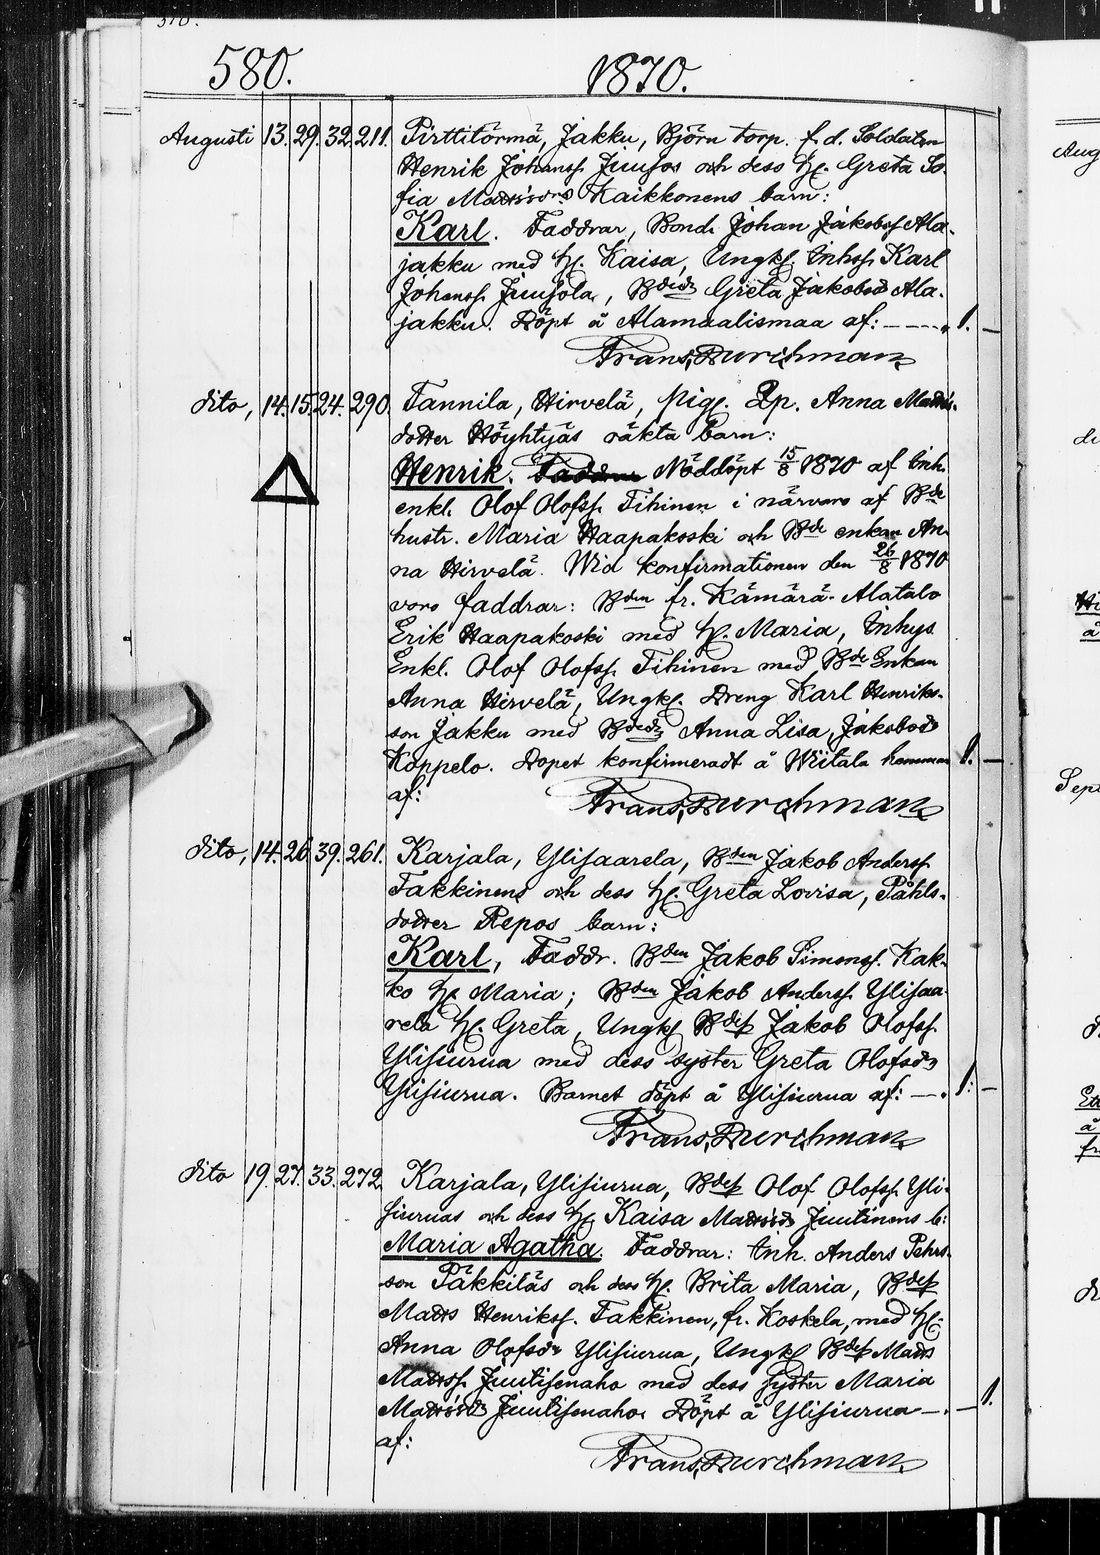 580. 1870.
Augusti 13. 29. 32. 211. Pirttitörmä, Jakku, Björn torp. f. d. Soldaten
Henrik Johanss. Juusos och dess H. Greta So-
fia Mattsdrs Kaikkonens barn:
Karl. Faddrar, Bond. Johan Jakobss. Ala-
jakku med H. Kaisa, Ungkl. Inhss. Karl
Johanss. Juusola, Greta Jakobsd. Ala-
jakku. Döpt å Alamaalismaa af: 1. —
Frans Durchman
dito, 14. 15. 24. 290. Tannila, Hirvelä, pig. Anna Matts-
dotter Höyhtyäs oäkta barn:
Henrik. Faddrar Nöddöpt 15/8 1870 af Inh.
enkl. Olof Olofss. Tihinen i närvaro af Bde
hustr. Maria Haapakoski och Bde enkan An-
na Hirvelä. Wid konfirmationen den 26/8 1870
voro faddrar: Bden fr. Kämärä-Alatalo
Erik Haapakoski med H. Maria, Inhys
Enkl. Olof Olofss. Tihinen med Bde Enkan
Anna Hirvelä, Ungkl. Dreng Karl Henriks-
son Jakku med Anna Lisa, Jakobsd
Koppelo. Dopet konfirmeradt å Wiitala hemman 1. —
af: Frans Durchman
dito, 14. 26. 39. 261. Karjala, Ylisaarela, Bden Jakob Anderss.
Takkinens och dess H. Greta Lovisa, Påhls-
dotter Repos barn:
Karl, Faddr. Bden Jakob Simonss. Kak-
ko H. Maria; Bden Jakob Anderss. Ylisaa-
rela H. Greta, Ungkl Bdess. Jakob Olofss.
Ylisiurua med dess syster Greta Olofsdr
Ylisiurua. Barnet döpt å Ylisiurua af: — . 1: —
Frans Durchman
dito 19. 27. 33. 272. Karjala, Ylisiurua, Bdess. Olof Olofss. Yli-
siuruas och dess H. Kaisa Mattsd. Juutinens b:
Maria Agatha. Faddrar: Inh. Anders Pehrs-
son Päkkiläs och dess H. Brita Maria, Bdess.
Matts Henrikss. Takkinen, fr. Koskela, med H:
Anna Olofsdr Ylisiurua, Ungkl Bdess. Matts
Mattss. Juutisenaho med dess syster Maria
Mattsdr Juutisenaho. Döpt å Ylisiurua — . — 1.
af: Frans Durchman